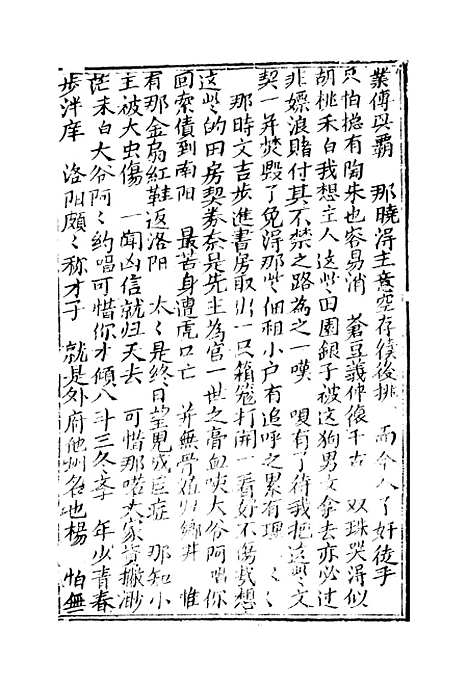 業傅與覇　那曉得主意空存候後挑　而今入了奸徒手
只怕揔有陶朱也容易消　蒼豆義仰復千古　双珠哭得似
胡桃禾白我想主人這些田園銀子被這狗男女拿去亦必过
非嫖浪賭付其不禁之路為之一嘆　唄有了待我把这些文
契一并焚毀了免得那些佃租小户有追呼之累有理〻〻
那時文吉步進書房取出一只箱篭打開一看好不傷感想
这些的田房契券奈是先主為官一世之膏血唉大爷阿唱你
回索債到南阳　最苦身遭虎口亡　并無骨殖归鄉井　惟
有那金扇紅鞋返洛阳　太〻是終日望児成巨症　那知小
主被大虫傷　一聞凶信就归天去　可惜那喏大家資撇渺
茫禾白大爷阿〻約唱可惜你才傾八斗三冬李　年少青春
步泮庠　洛阳頗〻称才子　就是外府他州名也楊　怕無